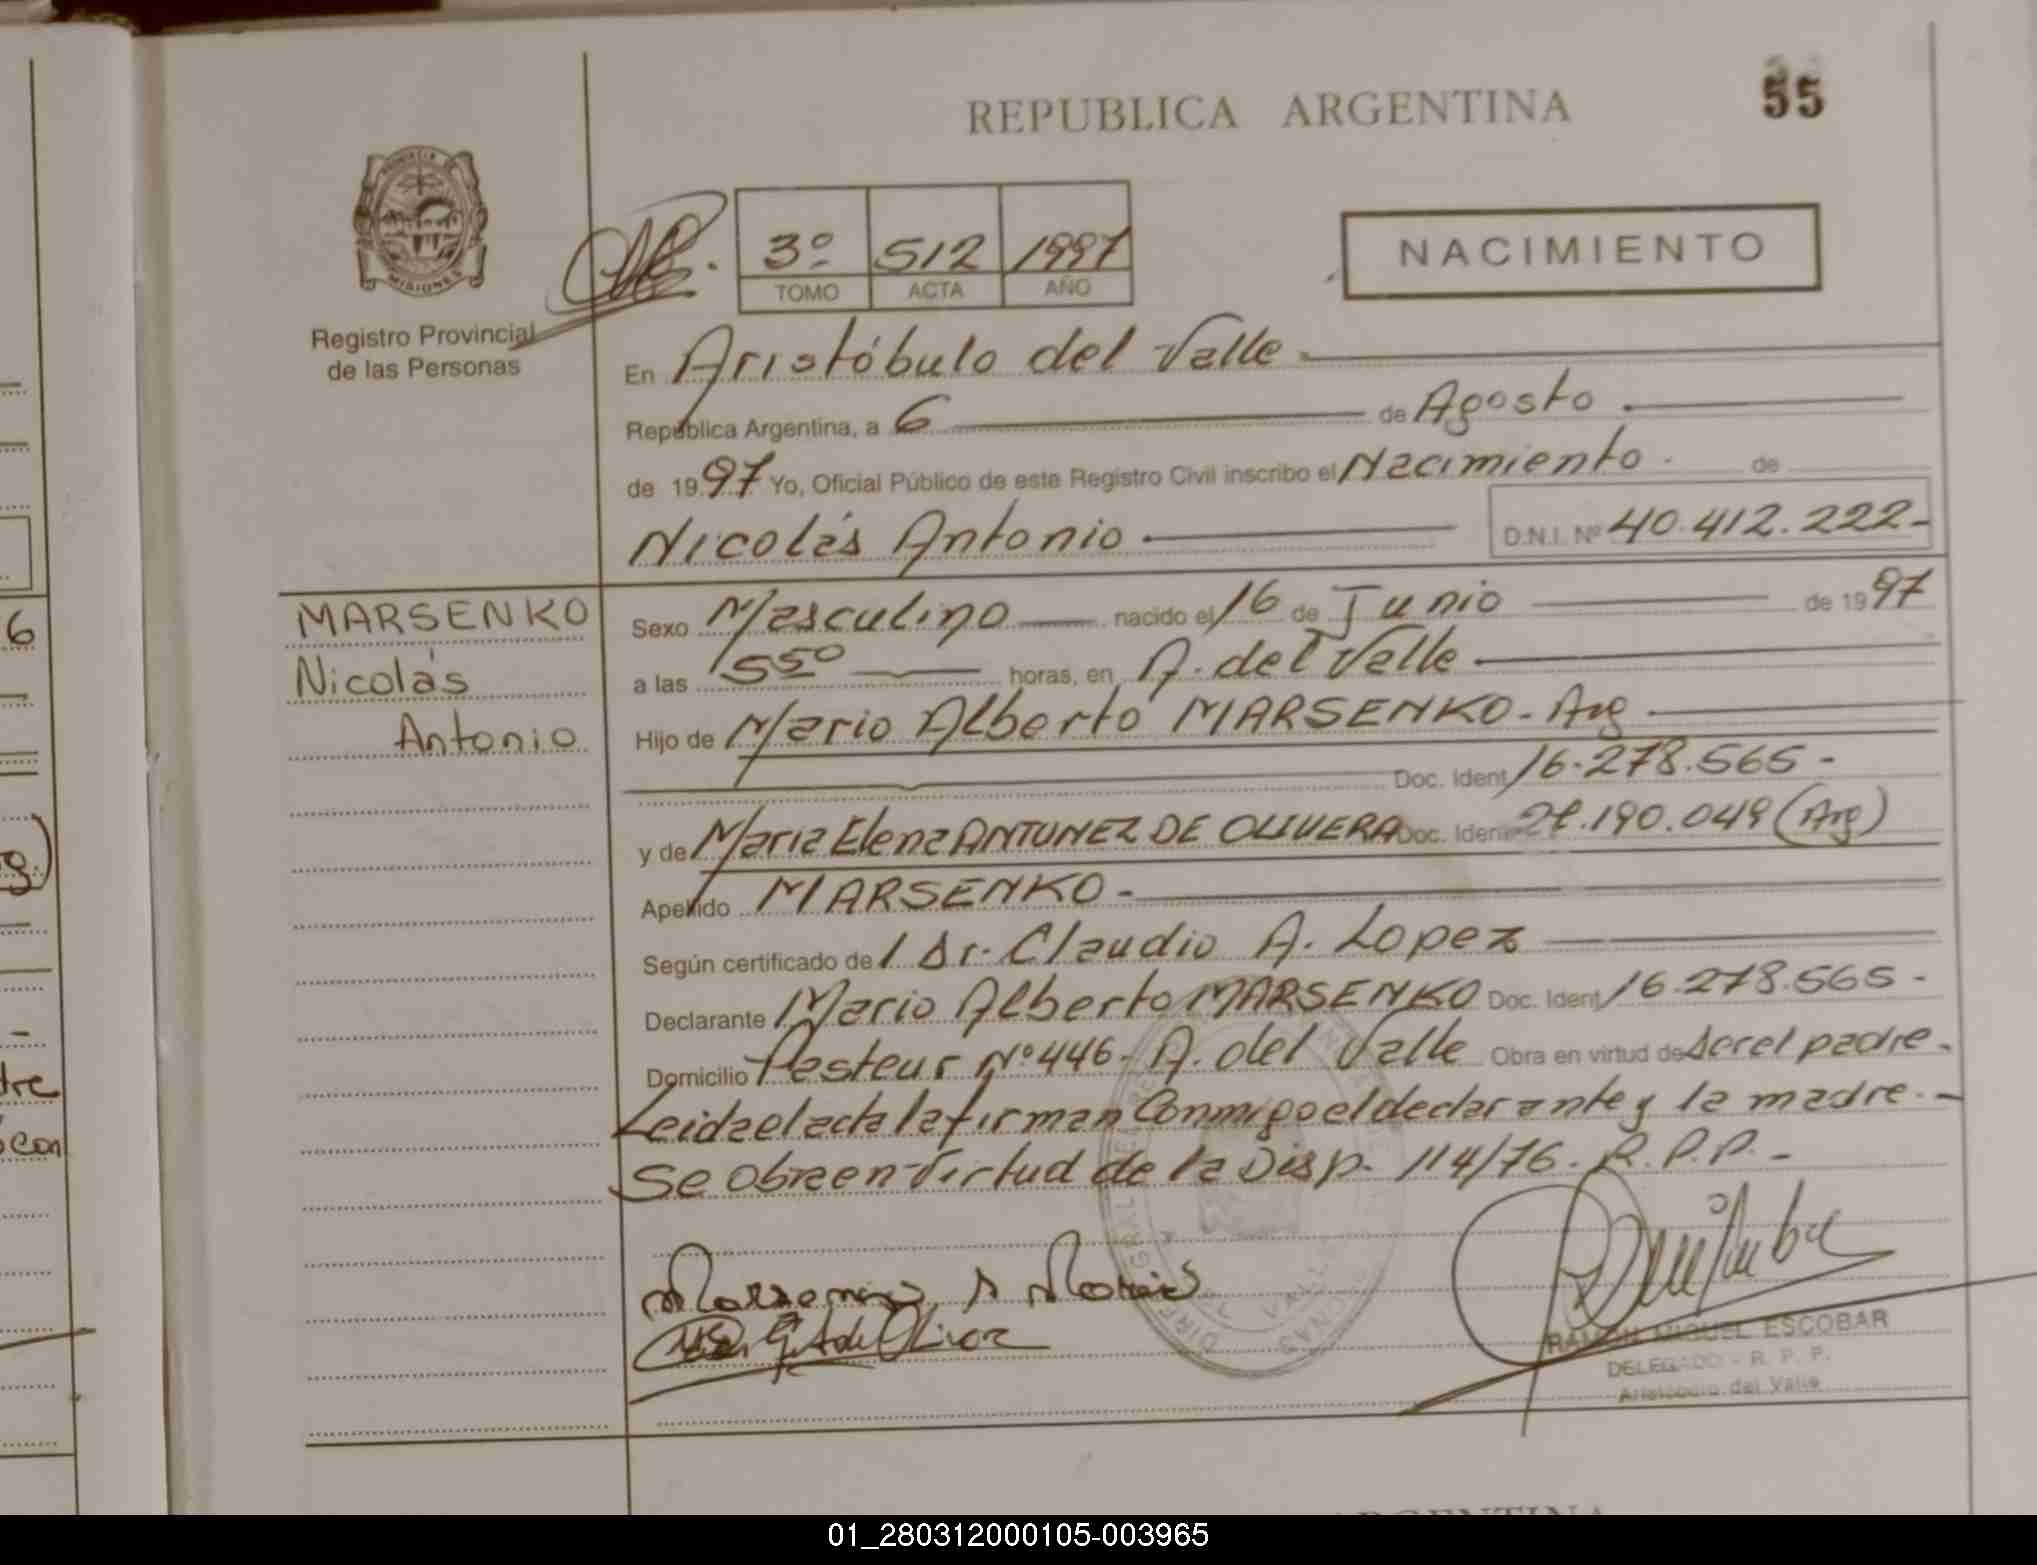 REPUBLICA ARGENTINA
55
PROVINCIA DE
MISIONES
Registro Provincial
de las Personas
3º 512 1997
TOMO ACTA AÑO
NACIMIENTO
En Aristóbulo del Valle
República Argentina, a 6 de Agosto
de 1997 Yo, Oficial Público de este Registro Civil inscribo el Nacimiento. de
Nicolás Antonio D.N.I. Nº 40.412.222-
MARSENKO
Nicolás
Antonio
Sexo Masculino nacido el 16 de Junio de 1997
a las 1550 horas, en A. del Valle
Hijo de Mario Alberto MARSENKO - Arg
Doc. Ident 16.278.565 -
y de Maria Elena ANTUNEZ DE OLIVERA Doc. Ident .190.049 (Arg)
Apellido MARSENKO -
Según certificado de l Dr. Claudio A. Lopez
Declarante Mario Alberto MARSENKO Doc. Ident 16.278.565 -
Domicilio Pasteur Nº 446 - A. del Valle Obra en virtud de ser el padre -
Leida el acta la firman Conmigo el declarante y la madre. -
Se obra en Virtud de la Disp. 114/76. R.P.P. -
RAMON MIGUEL ESCOBAR
DELEGADO - R. P. P.
Aristobulo del Valle
6
g.)
-
dre
con
ARGENTINA
01_280312000105-003965